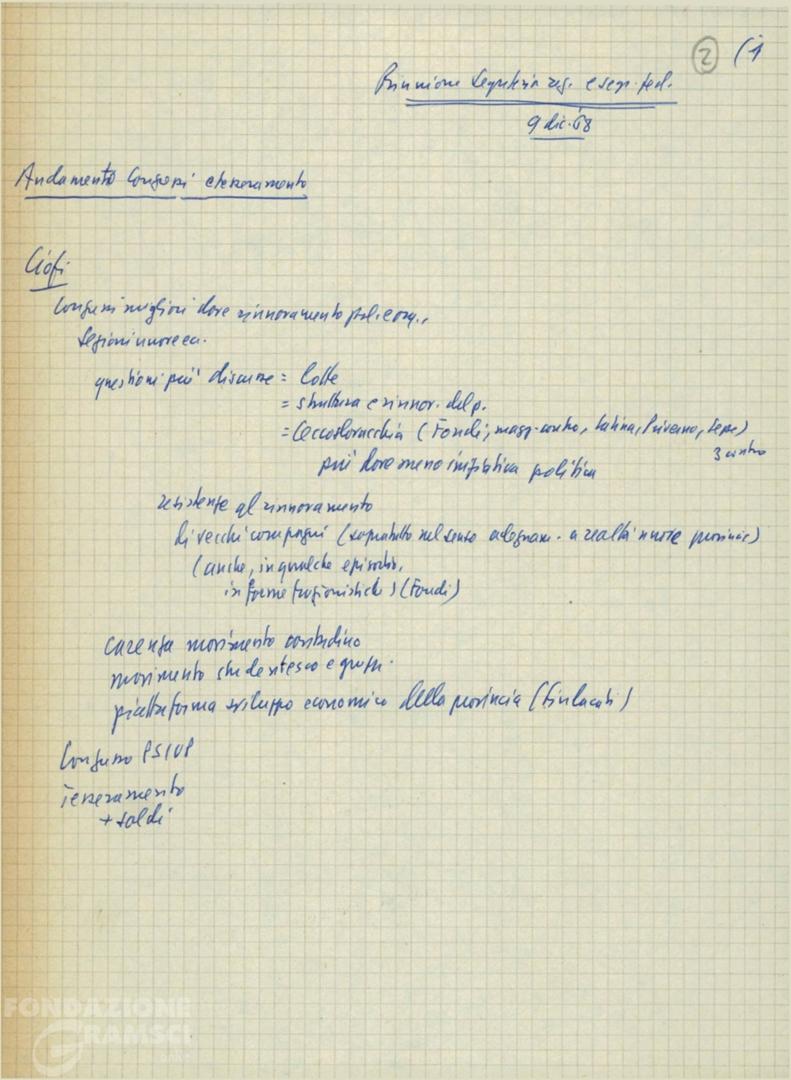 2 (1
Riunione Segreteria reg. e segr. fed.
9 dic. 68
Andamento Congressi e tesseramento
Ciofi
Congressi migliori dove rinnovamento pol. e org.,
Sezioni nuove ecc.
questioni più discusse = lotte
= struttura e rinnov. del p.
= Cecoslovacchia (Fondi, magg. contro, Latina, Priverno, Sezze)
3 contro
più dove meno iniziativa politica
resistenze al rinnovamento
di vecchi compagni (soprattutto nel senso adeguam. a realtà nuove provincia)
(anche, in qualche episodio,
in forme frazionistiche) (Fondi)
carenza movimento contadino
movimento studentesco e grupp.
piattaforma sviluppo economico della provincia
Congresso PSIUP
Tesseramento
+ soldi
FONDAZIONE
GRAMSCI